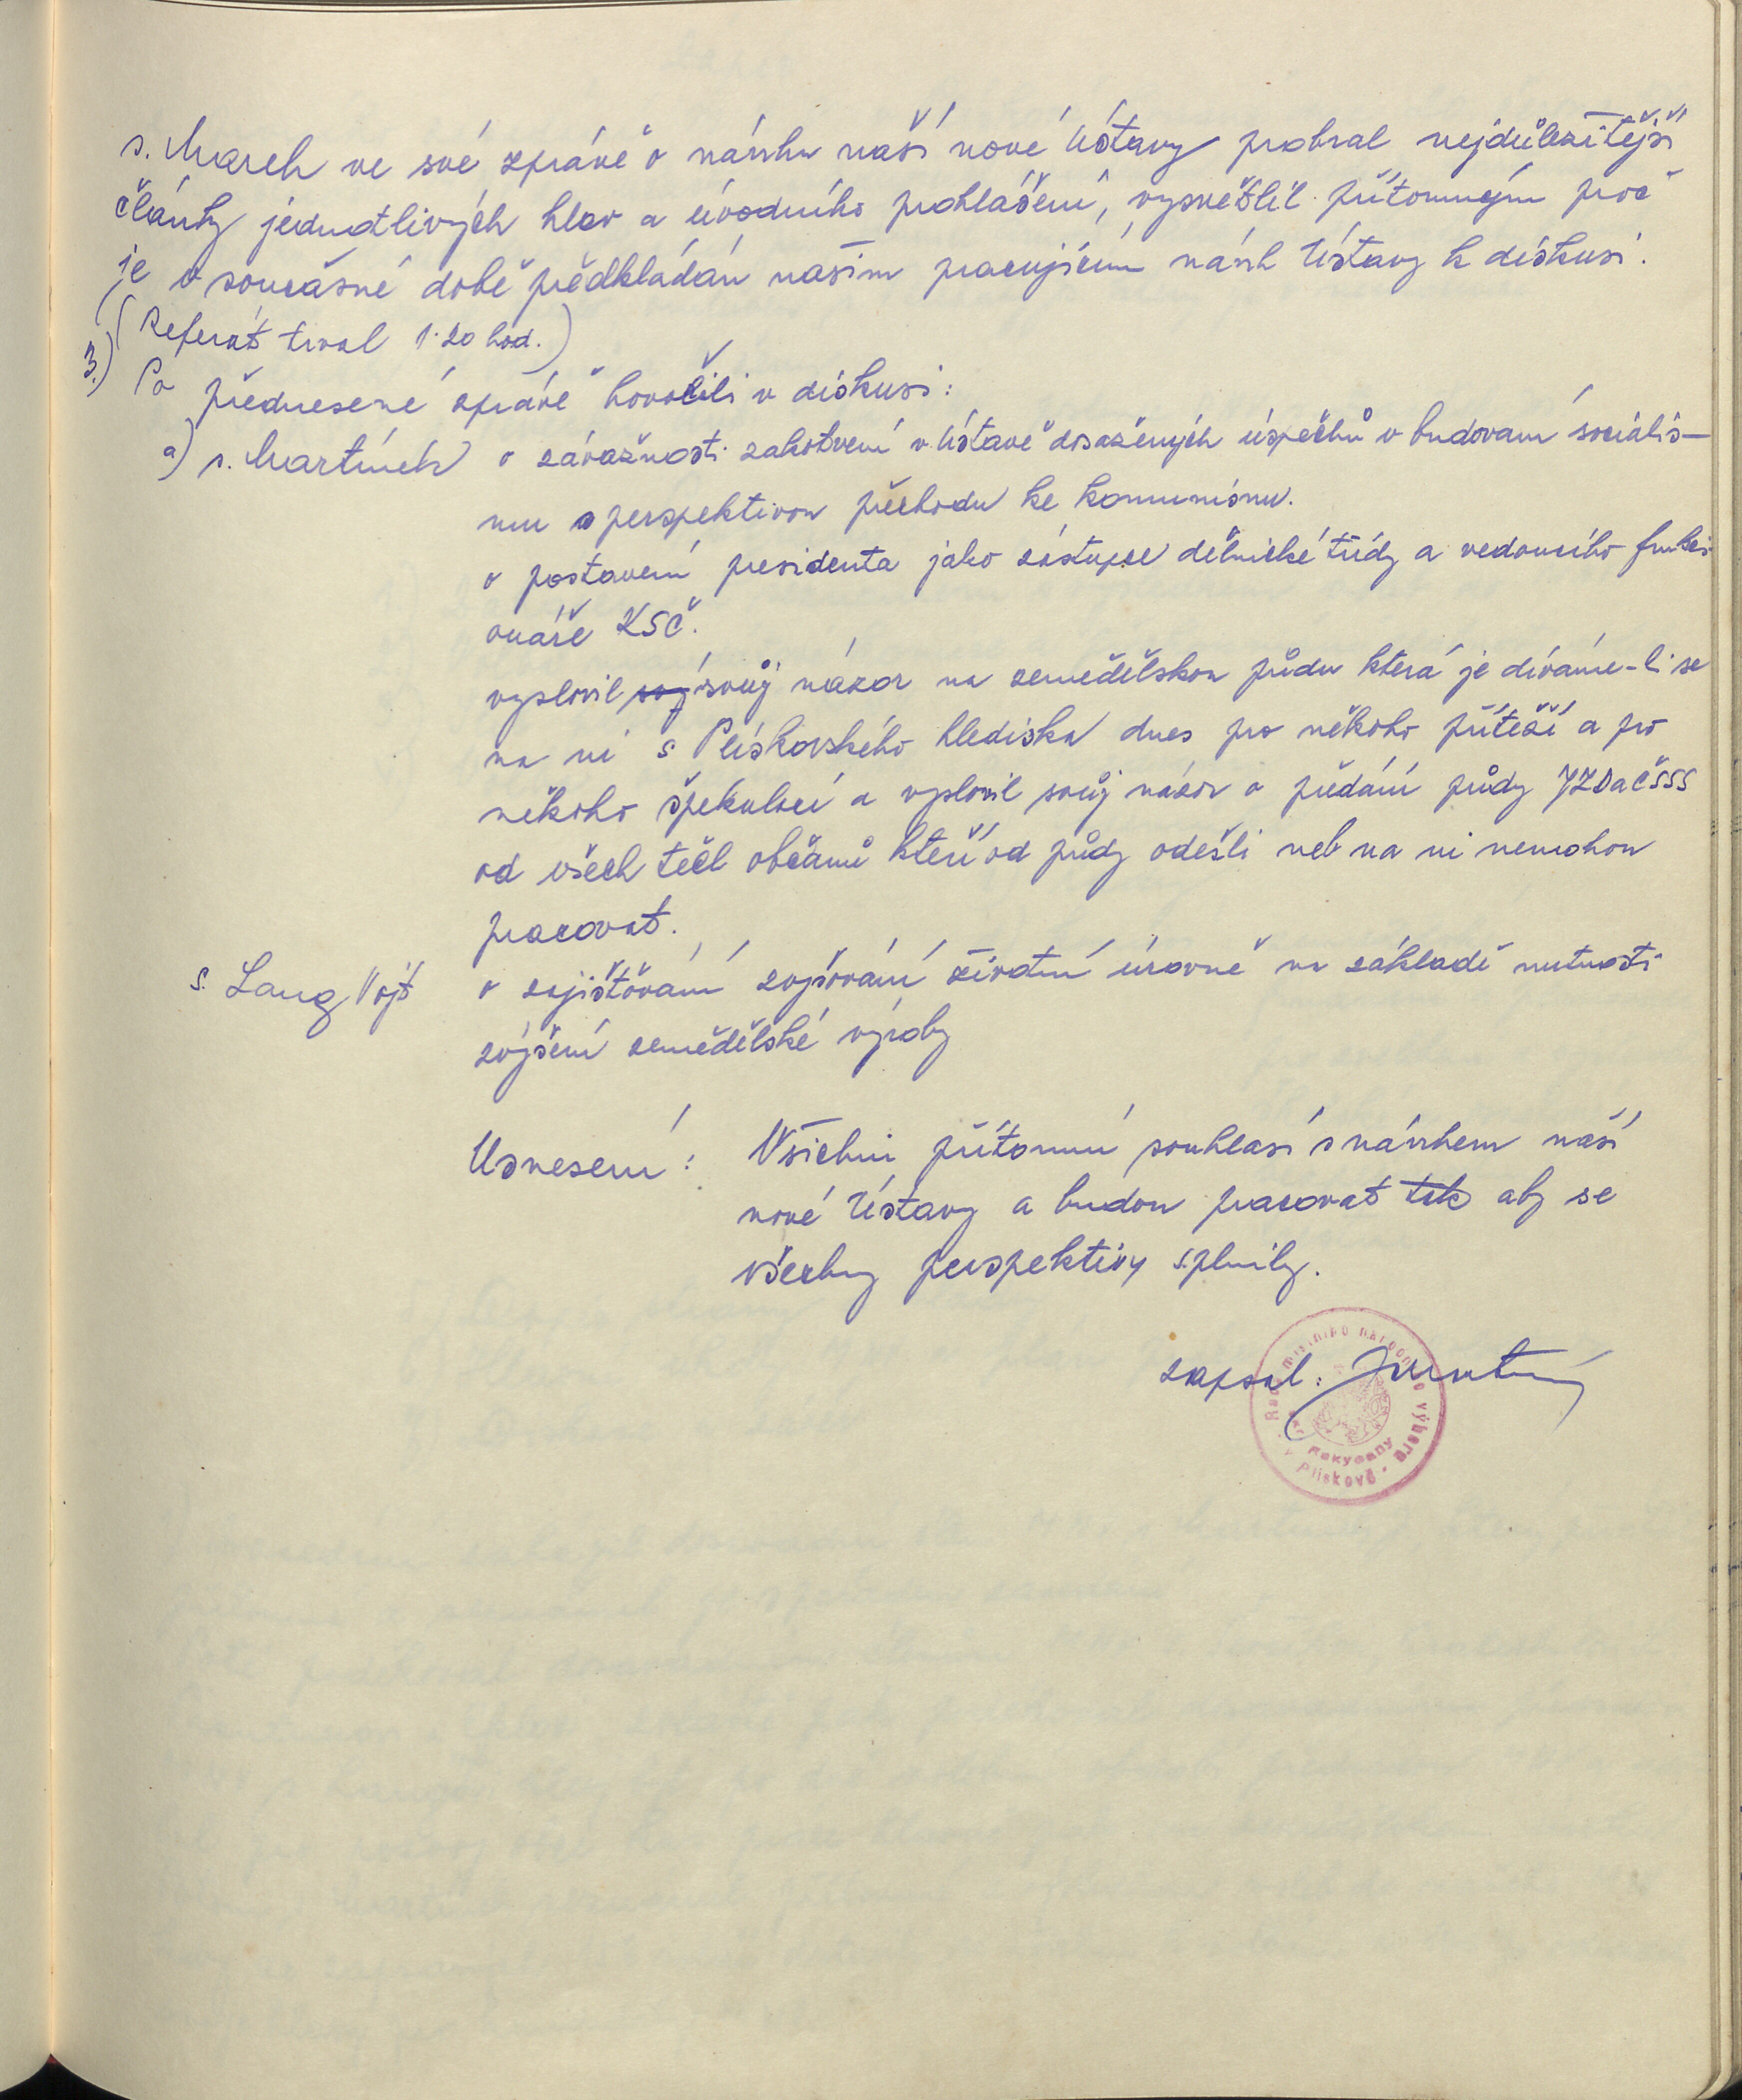 s. March ve své zprávě o návrhu naší nové Ústavy probral nejdůležitější
články jednotlivých hlav a úvodního prohlášení, vysvětlil přítomným proč
je v současné době předkládán našim pracujícím návrh Ústavy k diskusi.
(Referát trval 1.20 hod.)
3.) Po přednesené zprávě hovořili v diskusi:
a) s. Martínek o závažnosti zakotvení v Ústavě dosažených úspěchů v budovaní sociális-
mu s perspektivou přechodu ke komunismu.
o postavení presidenta jako zástupce dělnické třídy a vedoucího funkci-
onáře KSČ.
vyslovil svůj názor na zemědělskou půdu která je díváme-li se
na ni s Plískovského hlediska dnes pro někoho přítěží a pro
někoho špekulací a vyslovil svůj názor o předání půdy JZD a ČSSS
od všech těch občanů kteří od půdy odešli neb na ni nemohou
pracovat.
s. Lang Vojt o zajišťování zvyšování životní úrovně na základě nutnosti
zvýšení zemědělské výroby
Usnesení: Všichni přítomní souhlasí s návrhem naší
nové Ústavy a budou pracovat tak aby se
všechny perspektivy splnily.
zapsal:
Rada místního národního výboru
v Plískově
Rokycany